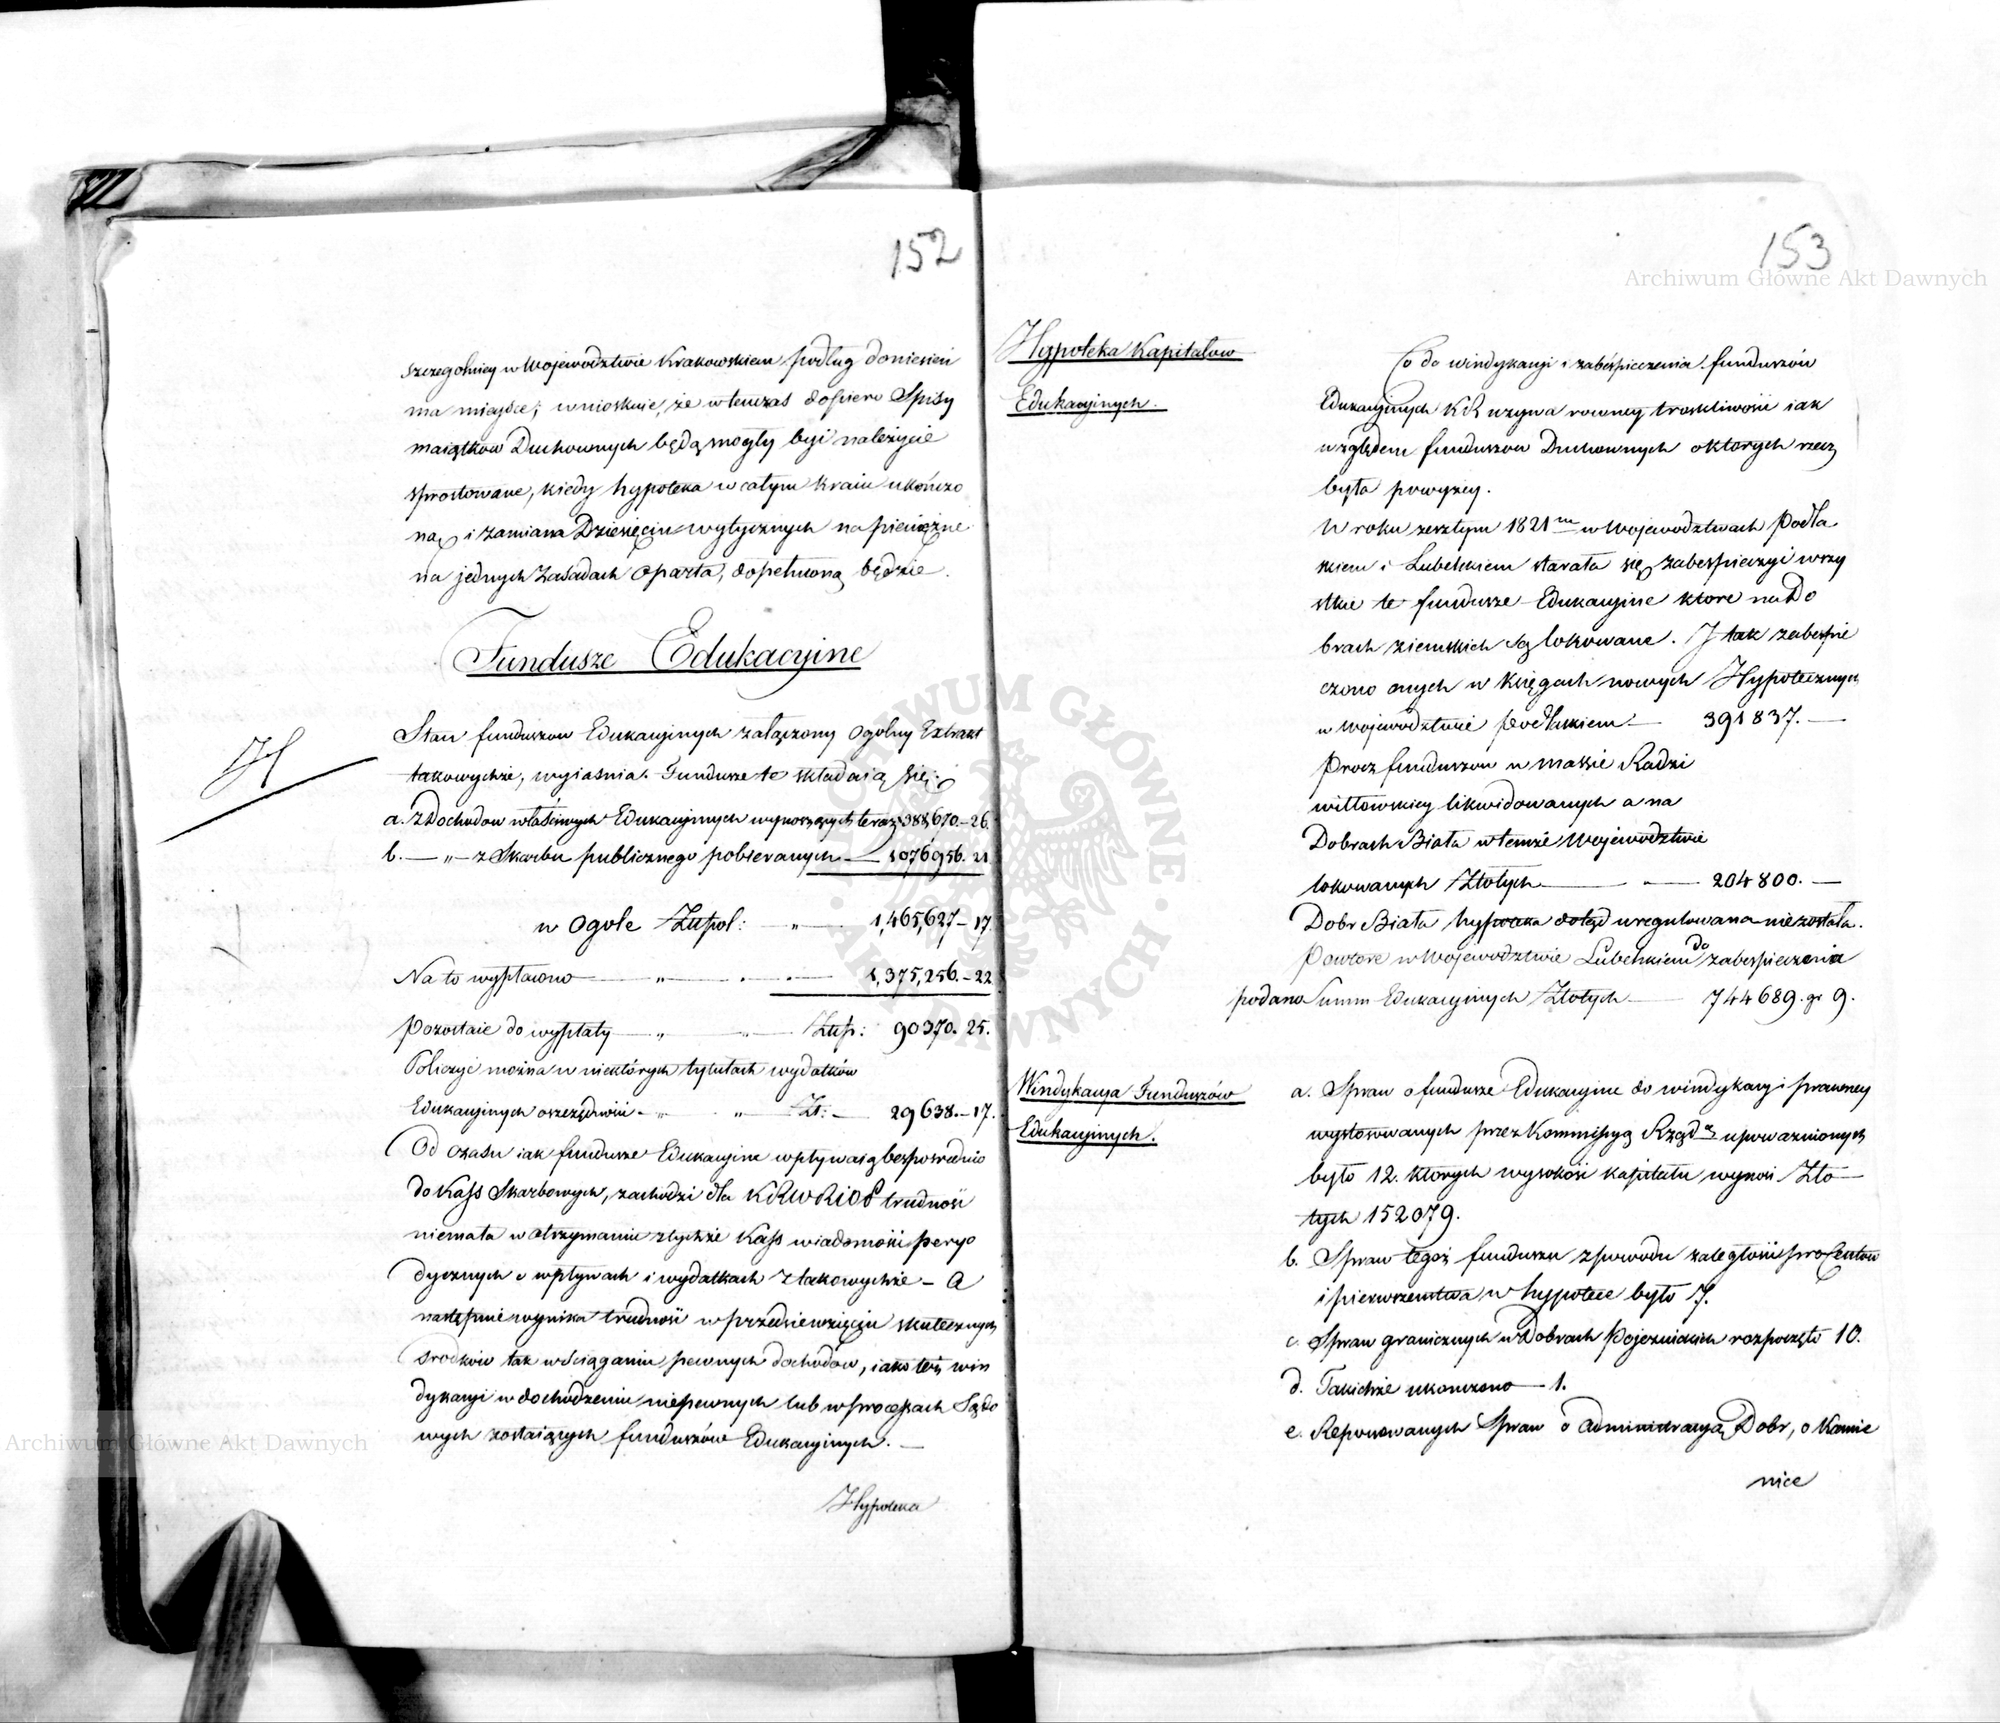 152
szczegolniey w Woiewodztwie Krakowskiem podług doniesień
ma mieysce; wnioskuie, że wtenczas dopiero Spisy
maiątków Duchownych będą mogły być należycie
sprostowane, kiedy hypoteka w całym Kraiu ukończo
ną, i zamiana Dziesięcin wytycznych na pieniężne
na jednych zasadach oparta, dopełnioną będzie.
Fundusze Edukacyine
Stan funduszow Edukacyinych załączony Ogolny Extrakt
takowychże, wyiaśnia. Fundusze te składaią się:
H
a. z Dochodow właściwych Edukacyinych wynoszących teraz 388,670.-26.
b. — „ — z Skarbu publicznego pobieranych — 1076956. 21
w Ogole Złłpol: — „ — 1,465,627-17.
Na to wypłacono — „ — 1,375,256.-22
Pozostaie do wypłaty — „ — „ — Złłp: 90370. 25.
Policzyć można w niektórych tytułach wydatków
Edukacyinych oszczędności - „ — „ Zł: — 29638.-17.
Od czasu iak fundusze Edukacyine wpływaią bespośrednio
do Kass Skarbowych, zachodzi dla KRWRiOP trudność
niemała w otrzymaniu z tychże Kass wiadomości peryo
dycznych o wpływach i wydatkach z takowychże - a
następnie wynika trudność w przedsiewzięciu skutecznych
srodków tak w ściąganiu pewnych dochodów, iako też win
dykacyi w dochodzeniu niepewnych lub w processach Sądo
wych zostaiących funduszów Edukacyinych. —
Hypoteka
153
Archiwum Główne Akt Dawnych
Hypoteka Kapitałow
Edukacyinych.
Co do windykacyi i zabespieczenia funduszów
Edukacyinych KR uzywa rowney troskliwości iak
względem funduszow Duchownych o ktorych rzecz
była powyzey.
W roku zeszłym 1821m w Woiewodztwach Podla
skiem i Lubelskiem starała się zabespieczyć wszy
stkie te fundusze Edukacyine ktore na Do
brach ziemskich są lokowane. I tak zabespie
czono onych w Księgach nowych Hypotecznych
w Woiewodztwie Podlaskiem — 391837. —
Procz funduszow w massie Radzi
wiłłowskiey likwidowanych a na
Dobrach Biała w temże Woiewodztwie
lokowanych Złotych — „ — 204800. —
Dobr Biała hypoteka dotąd uregulowana nie została.
Powtore w Woiewodztwie Lubelskiem do zabespieczenia
podano Summ Edukacyinych Złotych — 744689. gr 9.
Windykacya Funduszów
Edukacyinych.
a. Spraw o fundusze Edukacyine do windykacyi prawney
wystosowanych przez Kommissyą Rządą upoważnionych
było 12. ktorych wysokość kapitału wynosi Zło
tych 152079.
b. Spraw tegoż funduszu z powodu zaległości procentow
i pierwszeństwa w hypotece było 7.
c. Spraw granicznych w Dobrach Pojezuickich rozpoczęto 10.
d. Takichże ukonczono — 1.
e. Reponowanych Spraw o administracyą Dobr, o Kamie
nice
Archiwum Główne Akt Dawnych
ARCHIWUM GŁÓWNE AKT DAWNYCH